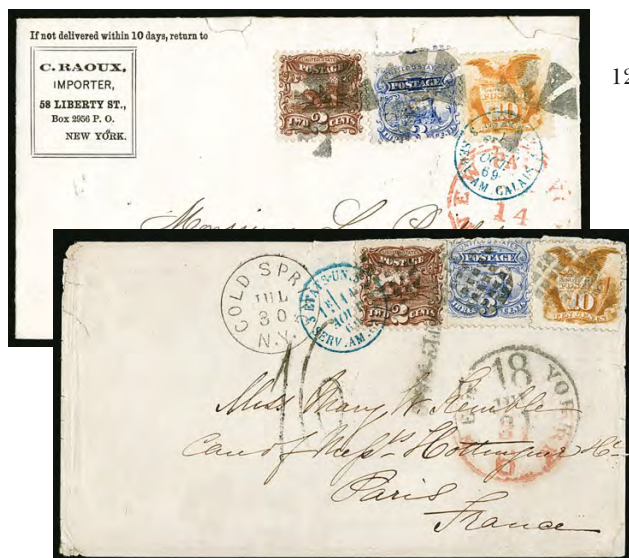 If not delivered within 10 days, return to
C. RAOUX,
IMPORTER,
58 LIBERTY ST.,
Box 2956 P. O.
NEW YORK.
12
POSTAGE
TWO 2 CENTS
UNITED STATES
POSTAGE
3
10
69
SERV. AM. CALAIS
NEW
PA
14
Monsieur
COLD SPR
JUL
30
N.Y.
ETATS-UN.
SERV. AM.
POSTAGE
TWO 2 CENTS
POSTAGE
THREE CENTS
10
TEN CENTS
18
YORK
Miss Mary W. Kemble
Care of Messrs Hottinguer & Co
Paris
France